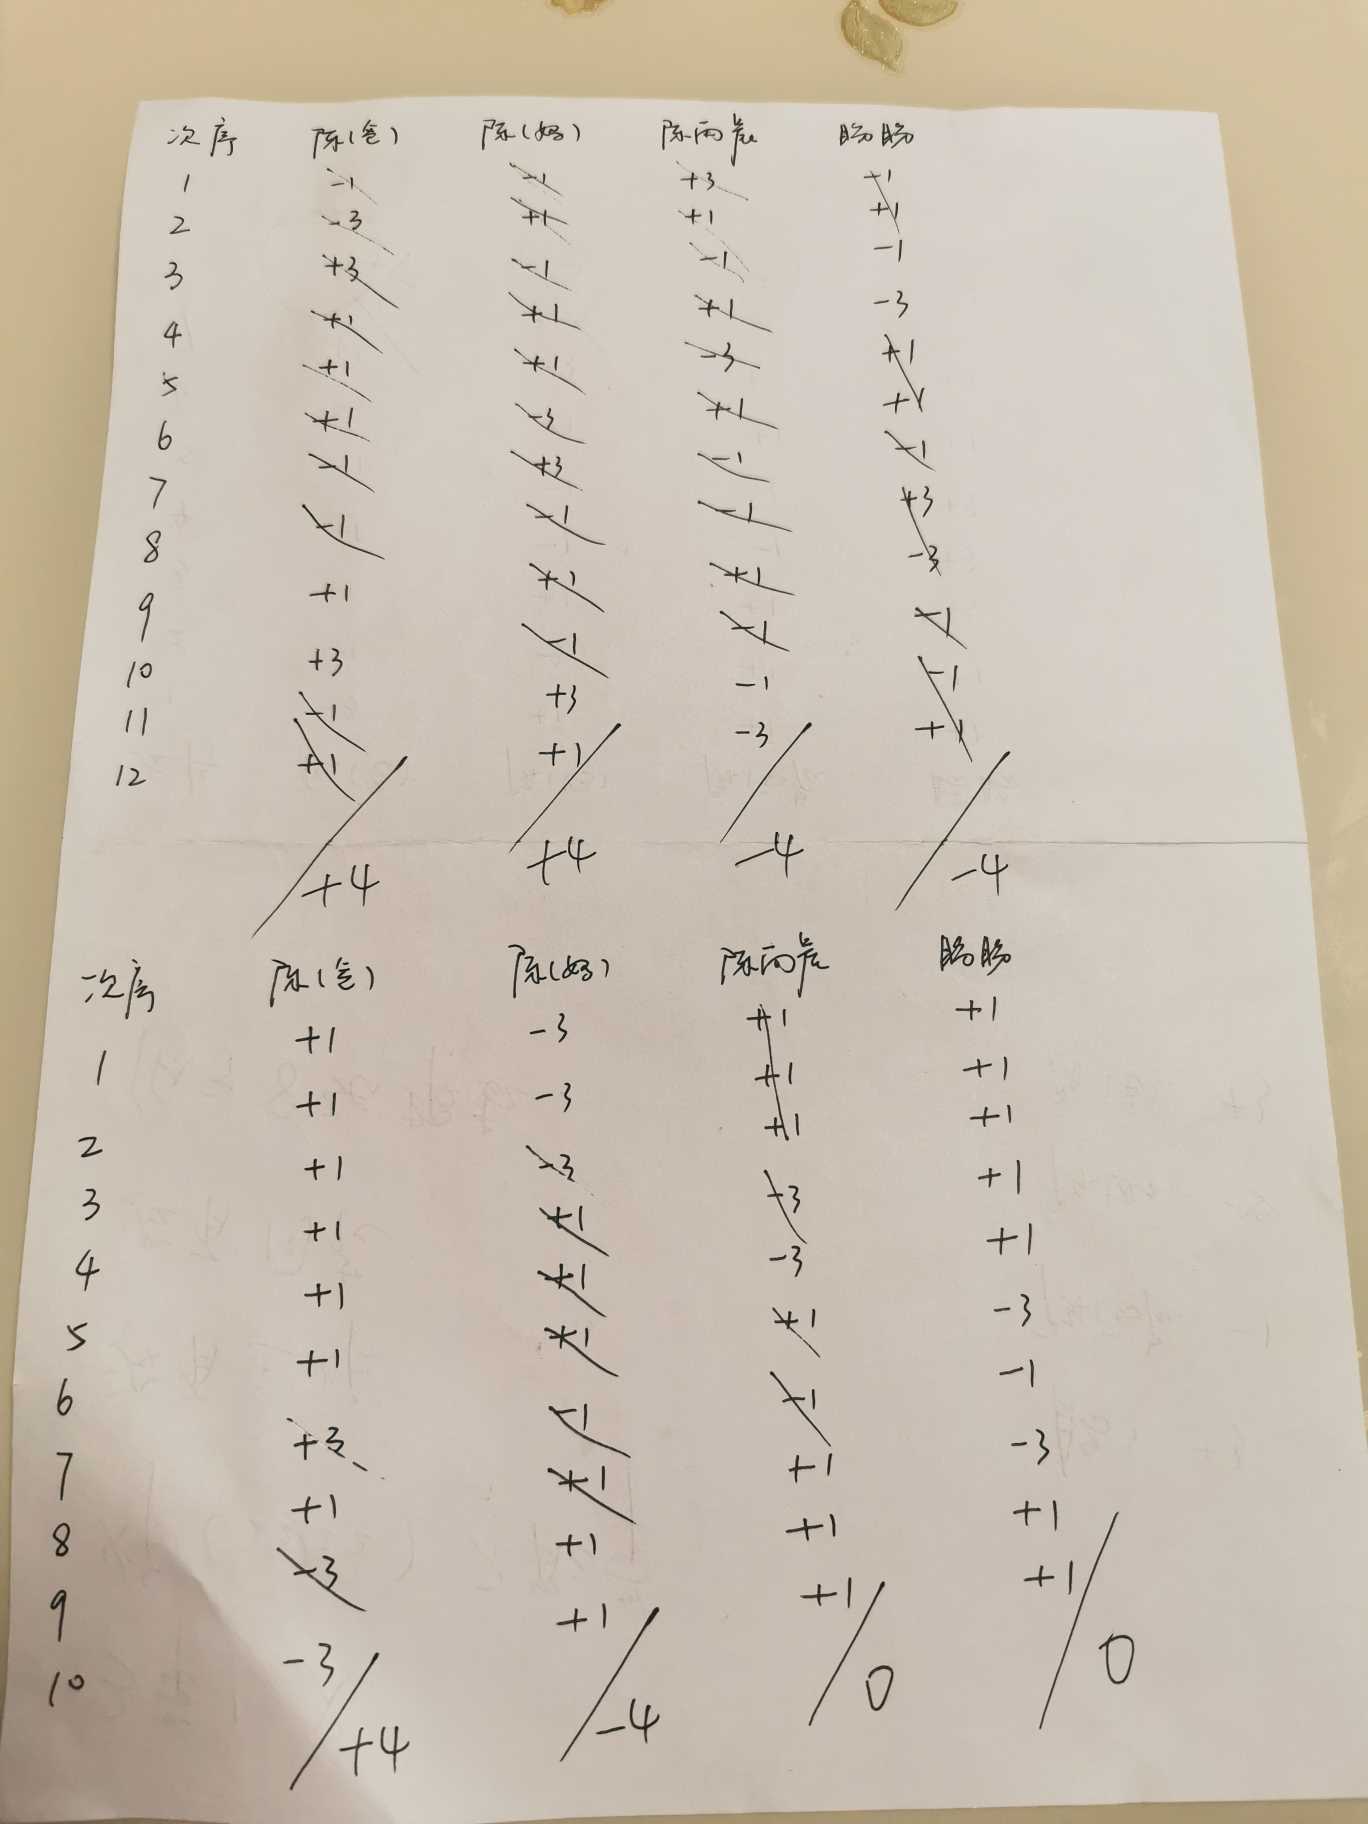 次序 陈(爸) 陈(妈) 陈雨晨 盼盼
1 -1 -1 +3 -1
2 -3 +1 +1 +1
3 +3 -1 -1 -1
4 +1 +1 +1 -3
5 +1 +1 -3 +1
6 +1 -3 +1 +1
7 -1 +3 -1 -1
8 -1 -1 -1 +3
9 +1 +1 +1 -3
10 +3 -1 -1 -1
11 -1 +3 -1 -1
12 +1 +1 -3 +1
+4 +4 -4 -4
次序 陈(爸) 陈(妈) 陈雨晨 盼盼
1 +1 -3 +1 +1
2 +1 -3 +1 +1
3 +1 -3 +1 +1
4 +1 +1 -3 +1
5 +1 +1 -3 +1
6 +1 +1 +1 -3
7 +3 -1 -1 -1
8 +1 +1 +1 -3
9 -3 +1 +1 +1
10 -3 +1 +1 +1
+4 -4 0 0